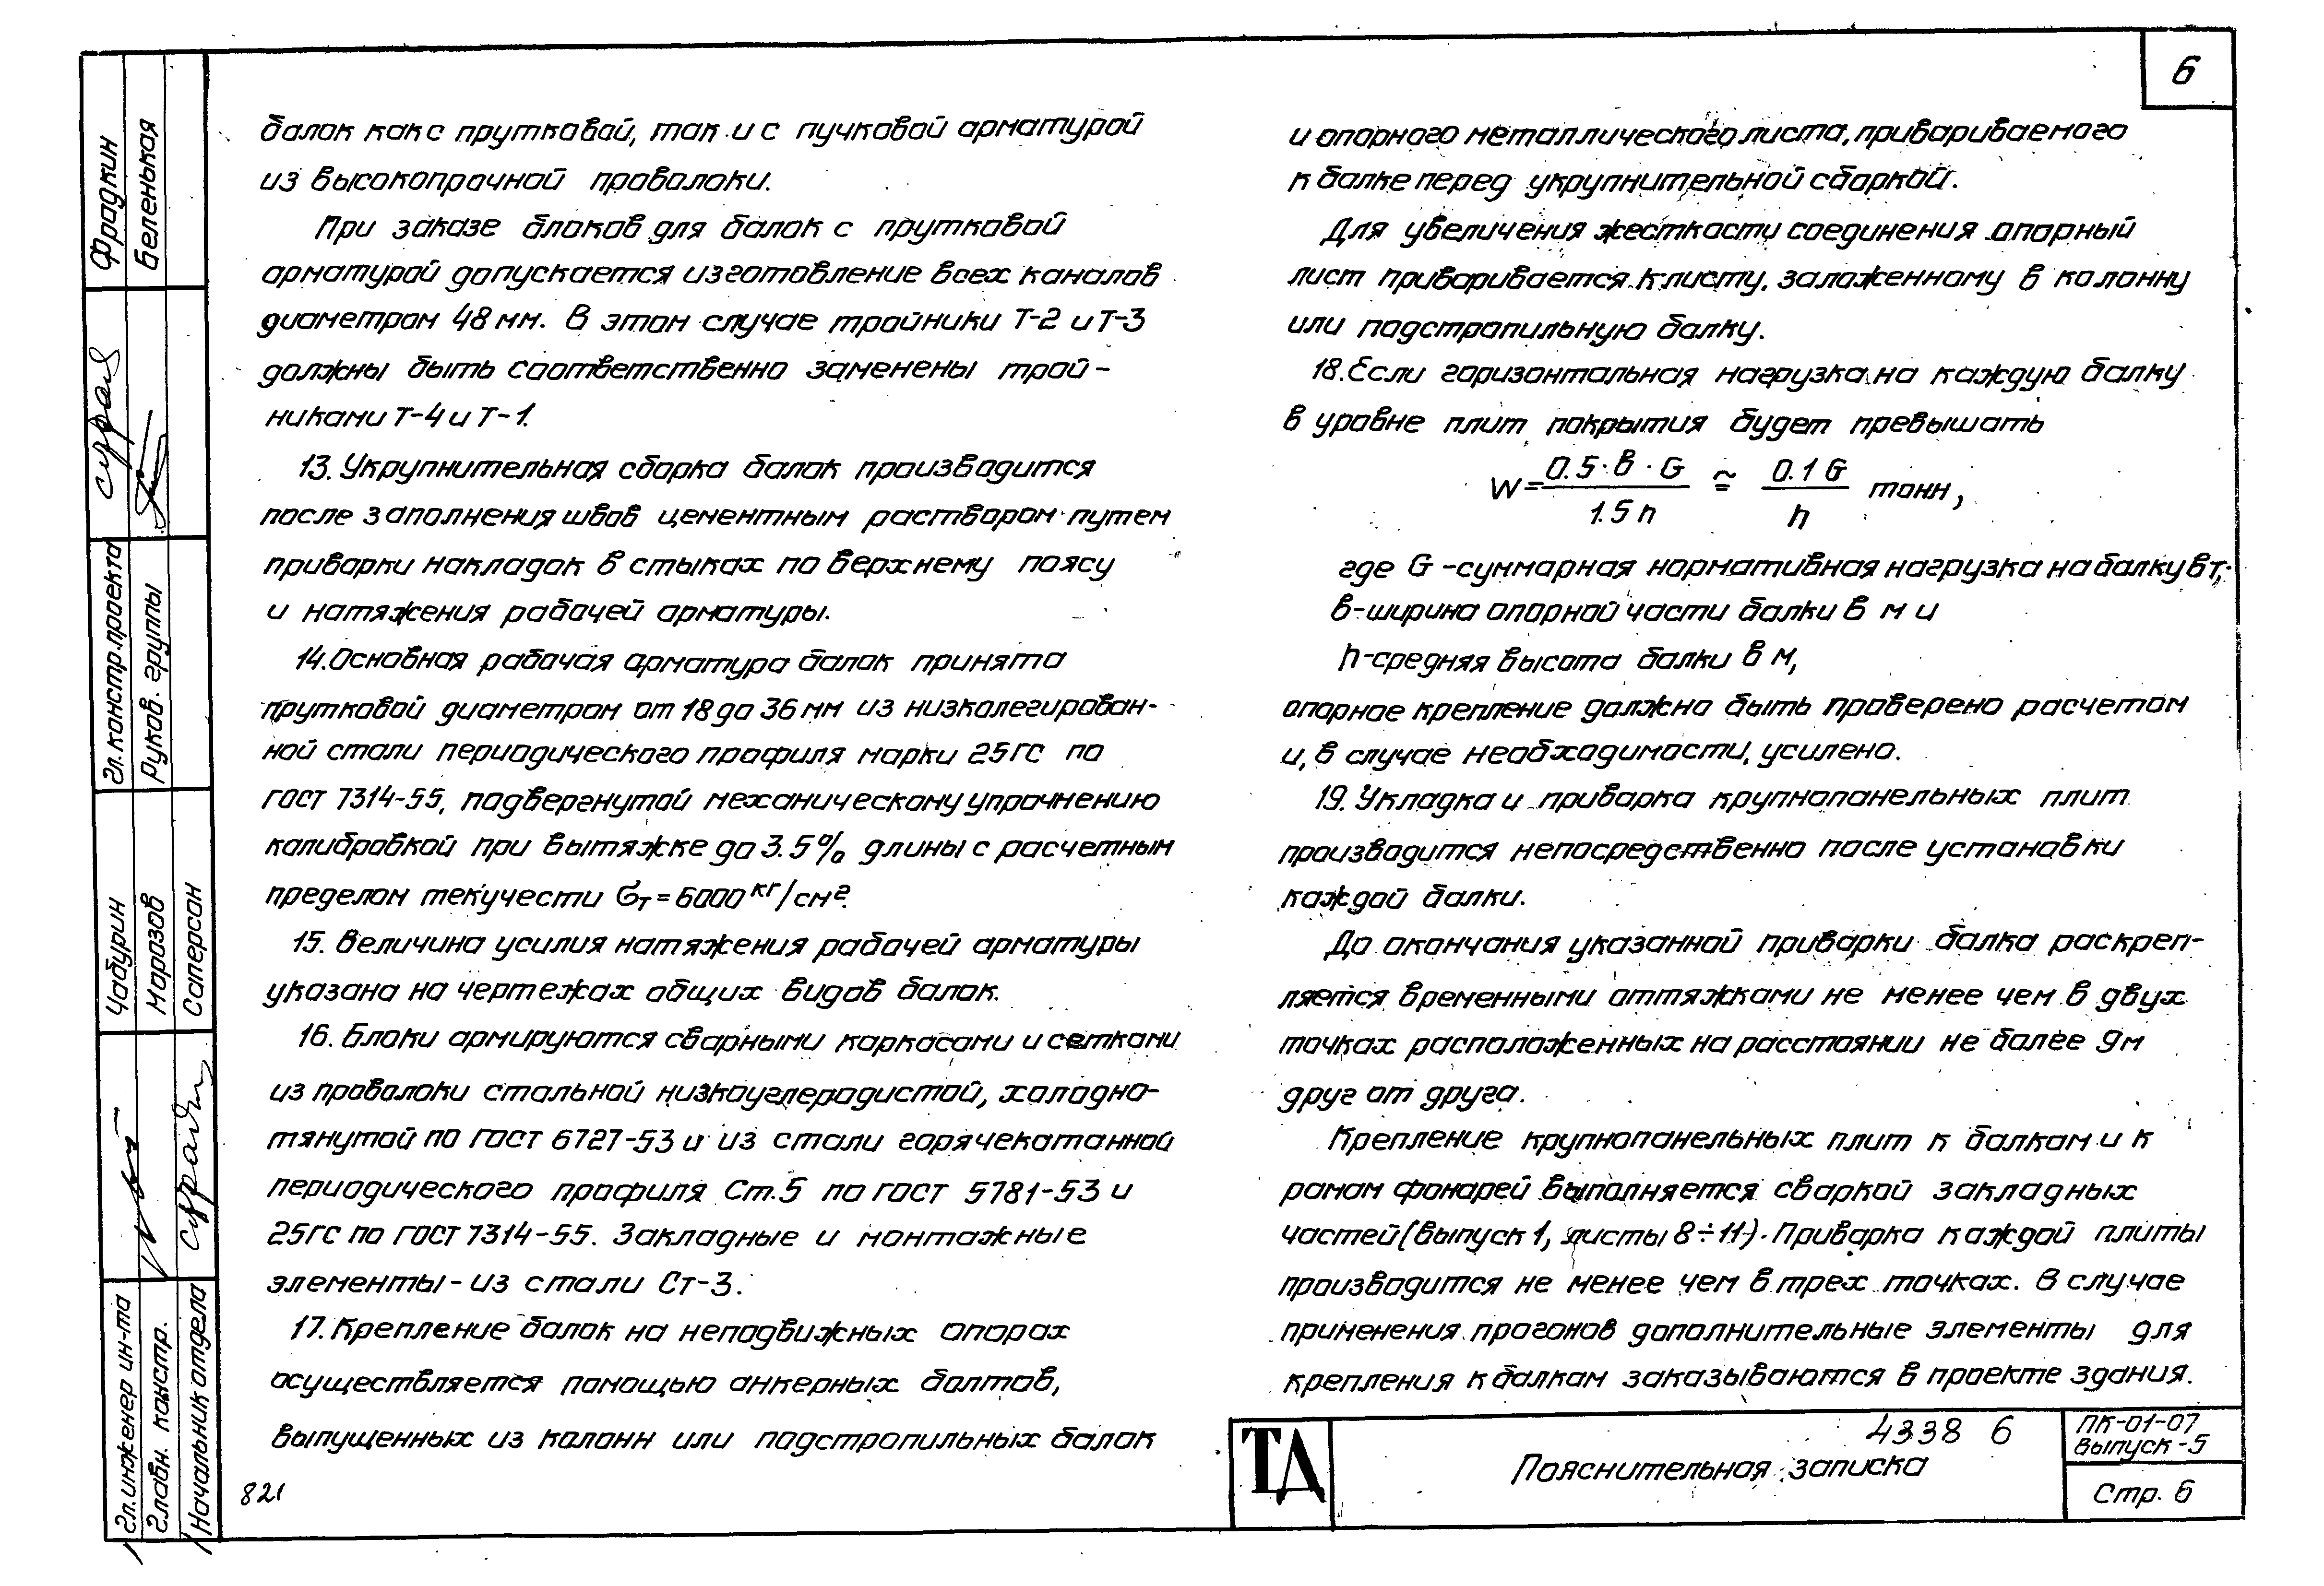 6
балок как с прутковой, так и с пучковой арматурой
из высокопрочной проволоки.
При заказе блоков для балок с прутковой
арматурой допускается изготовление всех каналов
диаметром 48 мм. В этом случае тройники Т-2 и Т-3
должны быть соответственно заменены трой-
никами Т-4 и Т-1.
13. Укрупнительная сборка балок производится
после заполнения швов цементным раствором путем
приварки накладок в стыках по верхнему поясу
и натяжения рабочей арматуры.
14. Основная рабочая арматура балок принята
прутковой диаметром от 18 до 36 мм из низколегирован-
ной стали периодического профиля марки 25ГС по
ГОСТ 7314-55, подвергнутой механическому упрочнению
калибровкой при вытяжке до 3.5% длины с расчетным
пределом текучести σт = 6000 кг/см².
15. Величина усилия натяжения рабочей арматуры
указана на чертежах общих видов балок.
16. Блоки армируются сварными каркасами и сетками
из проволоки стальной низкоуглеродистой, холодно-
тянутой по ГОСТ 6727-53 и из стали горячекатанной
периодического профиля Ст.5 по ГОСТ 5781-53 и
25ГС по ГОСТ 7314-55. Закладные и монтажные
элементы - из стали Ст-3.
17. Крепление балок на неподвижных опорах
осуществляется помощью анкерных болтов,
выпущенных из колонн или подстропильных балок
821
и опорного металлического листа, привариваемого
к балке перед укрупнительной сборкой.
Для увеличения жесткости соединения опорный
лист приваривается к листу, заложенному в колонну
или подстропильную балку.
18. Если горизонтальная нагрузка на каждую балку
в уровне плит покрытия будет превышать
W = 0.5·В·G / 1.5 h ≃ 0.1 G / h тонн,
где G - суммарная нормативная нагрузка на балку в т,
в - ширина опорной части балки в м и
h - средняя высота балки в м,
опорное крепление должно быть проверено расчетом
и, в случае необходимости, усилено.
19. Укладка и приварка крупнопанельных плит
производится непосредственно после установки
каждой балки.
До окончания указанной приварки балка раскреп-
ляется временными оттяжками не менее чем в двух
точках расположенных на расстоянии не более 9м
друг от друга.
Крепление крупнопанельных плит к балкам и к
рамам фонарей выполняется сваркой закладных
частей (выпуск 1, листы 8÷11). Приварка каждой плиты
производится не менее чем в трех точках. В случае
применения прогонов дополнительные элементы для
крепления к балкам заказываются в проекте здания.
ТД
Пояснительная записка
4338 6
ПК-01-07
Выпуск-5
Стр. 6
Гл. инженер ин-та
Главн. констр.
Начальник отдела
Чабурин
Морозов
Саперсон
Гл. констр. проекта
Руков. группы
Фрадкин
Беленькая